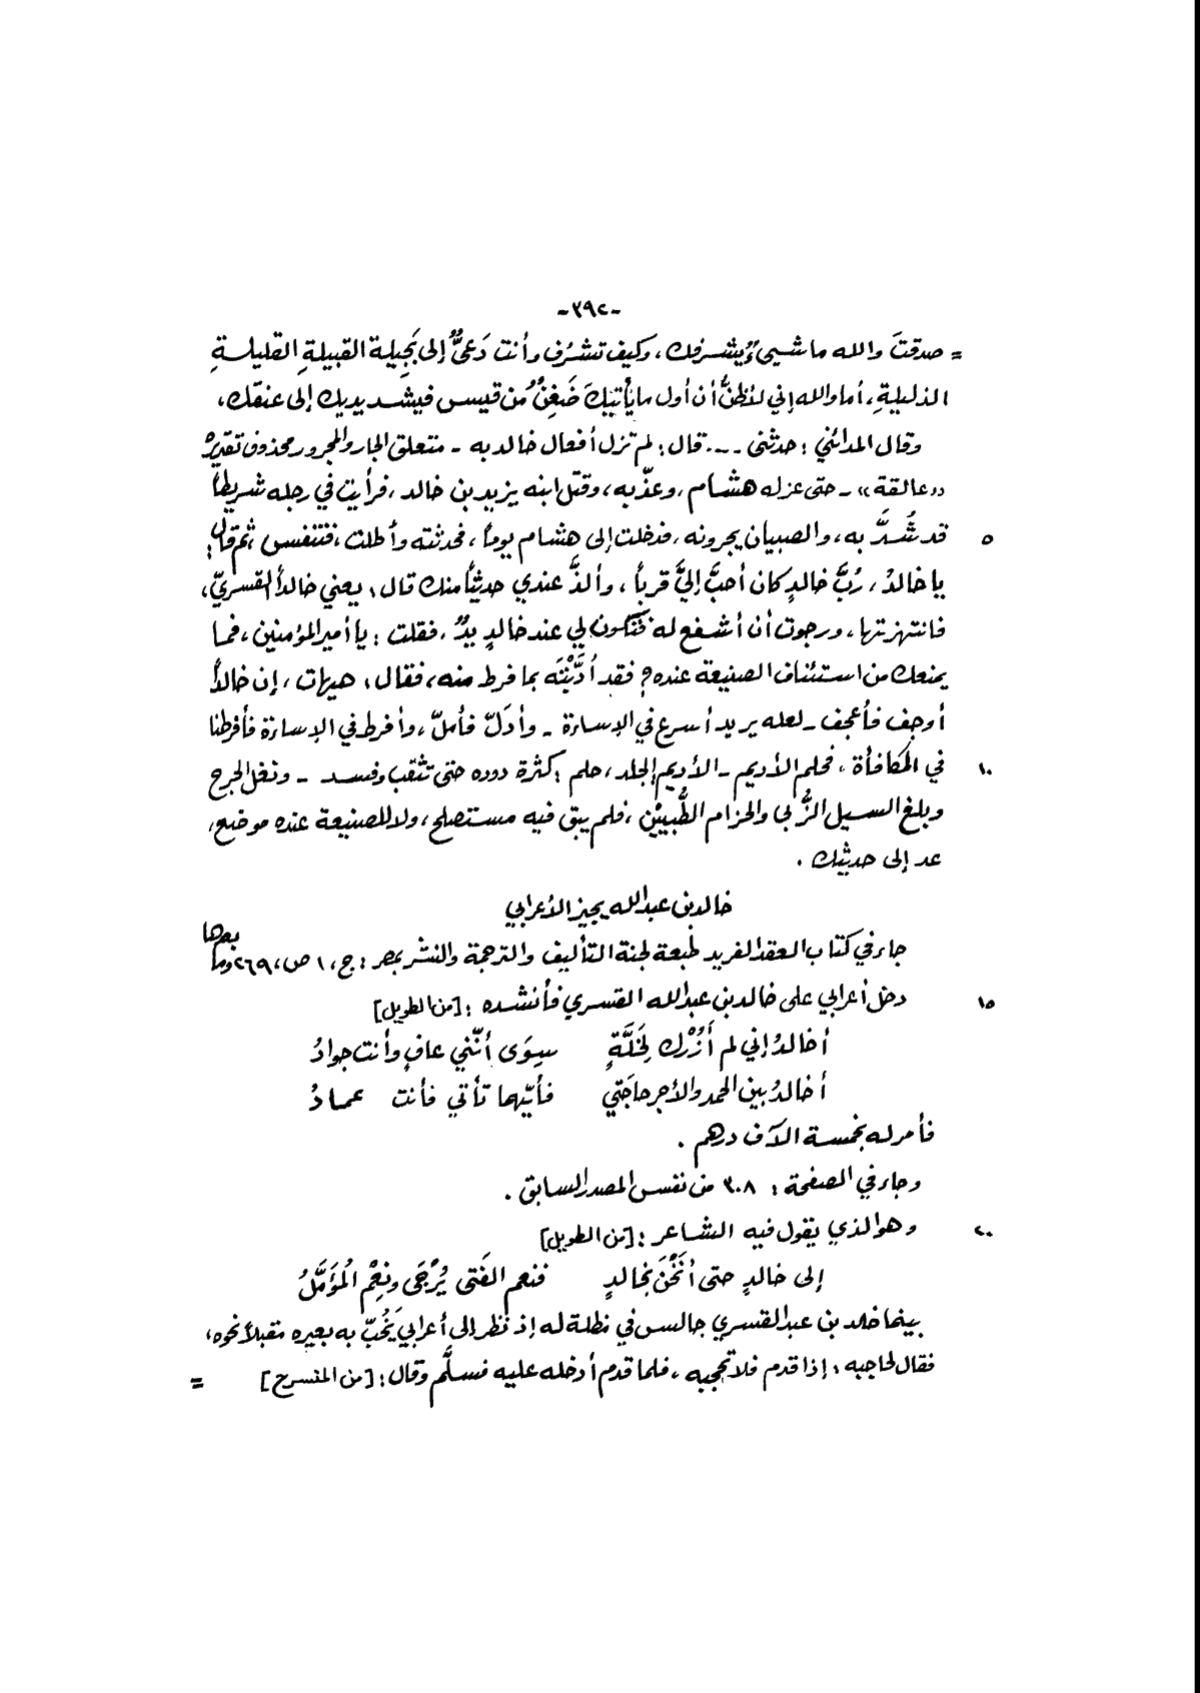 -٣٩٢-
= صدقتَ والله ما شيءٌ يُشرفك، وكيف تشرُف وأنت دَعيٌّ إلى بَجِيلة القبيلةِ القليلةِ
الذليلةِ، أما والله إني لأظنُّ أن أول ما يأتيك ضَغِنٌ من قيس فيشد يديك إلى عنقك،
وقال المدائني: حدثنى ... قال: لم تزل أفعال خالد به - متعلق الجار والمجرور محذوف تقديره
«عالقة» - حتى عزله هشام، وعذّبه، وقتل ابنه يزيد بن خالد، فرأيت في رجله شريطاً
٥ قد شُدَّ به، والصبيان يجرونه، فدخلت إلى هشام يوماً، فحدثته وأطلت، فتنفس، ثم قال:
يا خالدُ، رُبَّ خالدٍ كان أحبَّ إليَّ قرباً، وألذَّ عندي حديثاً منك قال: يعني خالداً القسريّ،
فانتهزتها، ورجوت أن أشفع له فتكون لي عند خالدٍ يدٌ، فقلت: يا أمير المؤمنين، فما
يمنعك من استئناف الصنيعة عنده؟ فقد أدَّبْتَه بما فرط منه، فقال: هيهات، إن خالداً
أوجف فأعجف - لعله يريد أسرع في الإساءة - وأدَلّ فأملّ، وأفرط في الإساءة فأفرطنا
١٠ في المكافأة، فحلم الأديم - الأديم الجلد، حلم: كثرة دوده حتى تثقب وفسد - ونغل الجرح
وبلغ السيل الزُّبى والحزام الطُّبيَيْن، فلم يبق فيه مستصلح، ولا للصنيعة عنده موضع،
عد إلى حديثك.
خالد بن عبدالله يجيز الأعرابي
جاء في كتاب العقد الفريد طبعة لجنة التأليف والترجمة والنشر بمصر: ج، ١ ص، ٢٦٩ وما بعدها
١٥ دخل أعرابي على خالد بن عبدالله القسري فأنشده: [من الطويل]
أخالدُ إني لم أَزُرْك لِخَلَّةٍ سِوَى أنّني عافٍ وأنت جوادُ
أخالدُ بين الحمد والأجر حاجَتي فأيّهما تأتي فأنت عمادُ
فأمر له بخمسة الآف درهم.
وجاء في الصفحة: ٣٠٨ من نفس المصدر السابق.
٢٠ وهو الذي يقول فيه الشاعر: [من الطويل]
إلى خالدٍ حتى أَنَخْنَ بخالدٍ فنعم الفَتى يُرْجَى ونِعْم المُؤَمَّلُ
بينما خلد بن عبد القسري جالس في نظلة له إذ نظر إلى أعرابي يَخُبّ به بعيره مقبلاً نحوه،
فقال لحاجبه: إذا قدم فلا تحجبه، فلما قدم أدخله عليه فسلَّم وقال: [من المنسرح] =